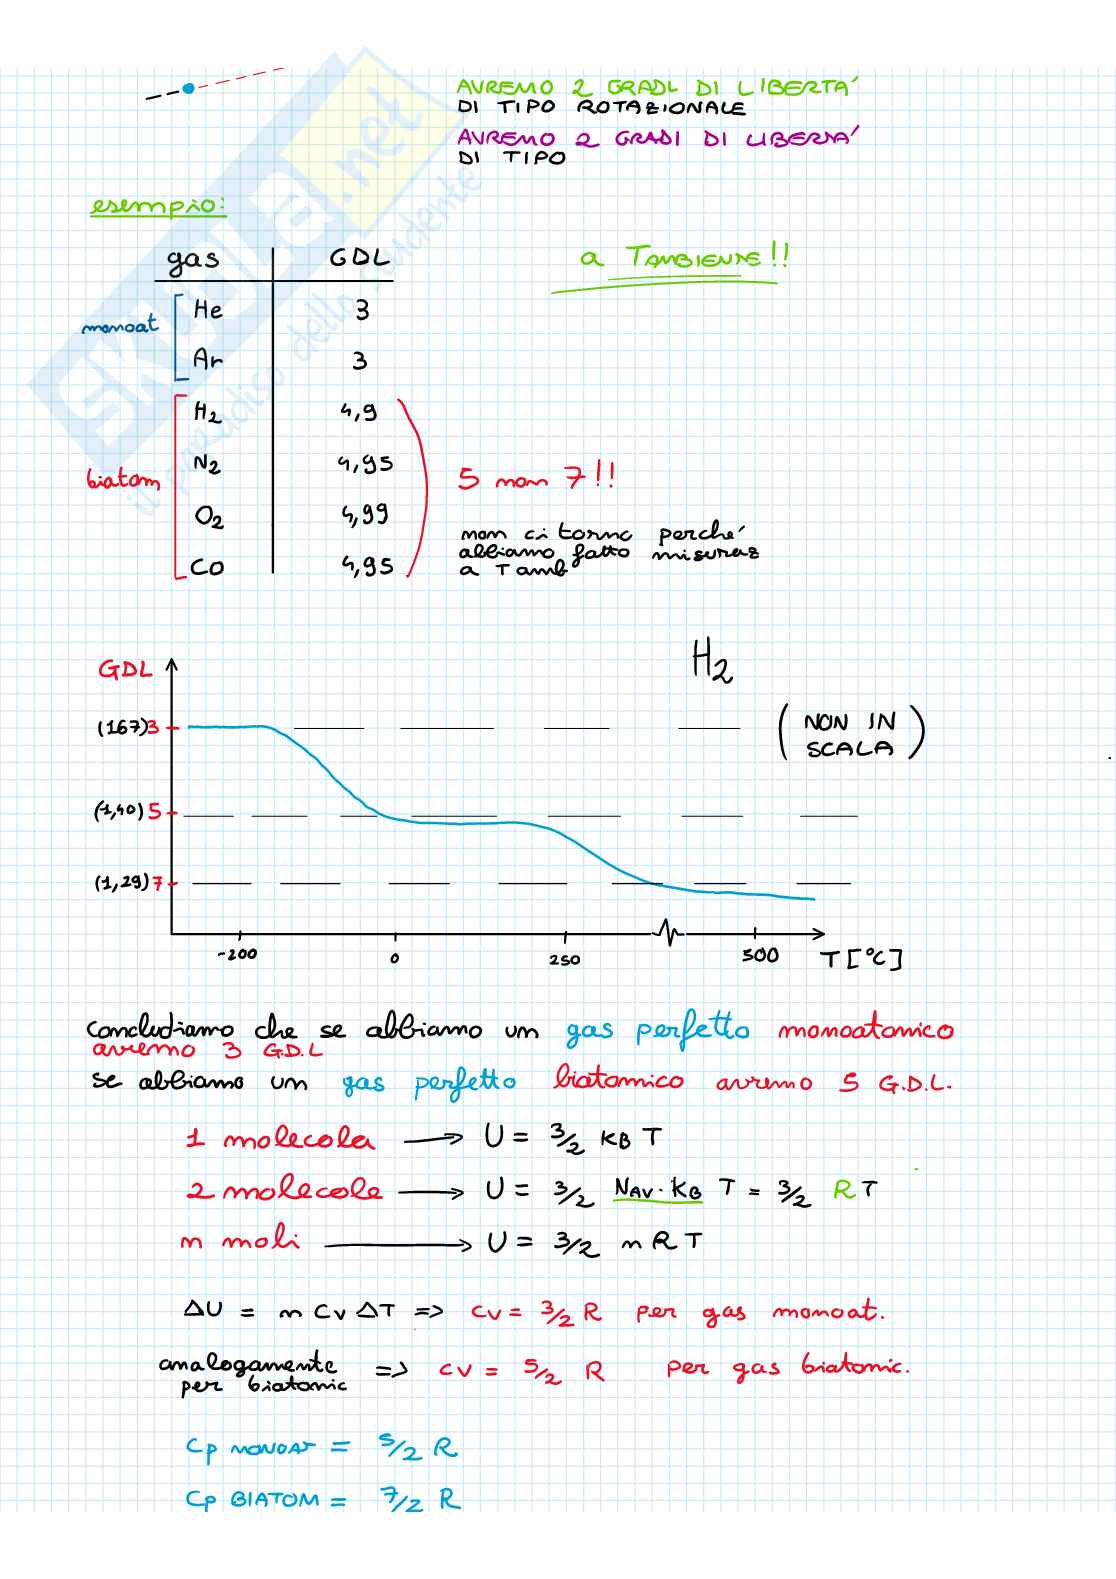 AVREMO 2 GRADI DI LIBERTA'
DI TIPO ROTAZIONALE
AVREMO 2 GRADI DI LIBERTA'
DI TIPO
esempio:
gas GDL
a TAMBIENTE!!
monoat
He 3
Ar 3
biatom
H2 4,9
N2 4,95
O2 4,99
CO 4,95
5 non 7!!
non ci torno perché
abbiamo fatto misuraz
a T amb
SKUOLA.net
il paradiso dello studente
H2
GDL
(167) 3
(NON IN
SCALA)
(1,40) 5
(1,29) 7
-200 0 250 500 T [°C]
concludiamo che se abbiamo un gas perfetto monoatomico
avremo 3 G.D.L
se abbiamo un gas perfetto biatomico avremo 5 G.D.L.
1 molecola → U = 3/2 KB T
2 molecole → U = 3/2 NAV·KB T = 3/2 RT
n moli → U = 3/2 n R T
ΔU = n Cv ΔT => cv = 3/2 R per gas monoat.
analogamente
per biatomic => cv = 5/2 R per gas biatomic.
Cp MONOAT = 5/2 R
Cp BIATOM = 7/2 R